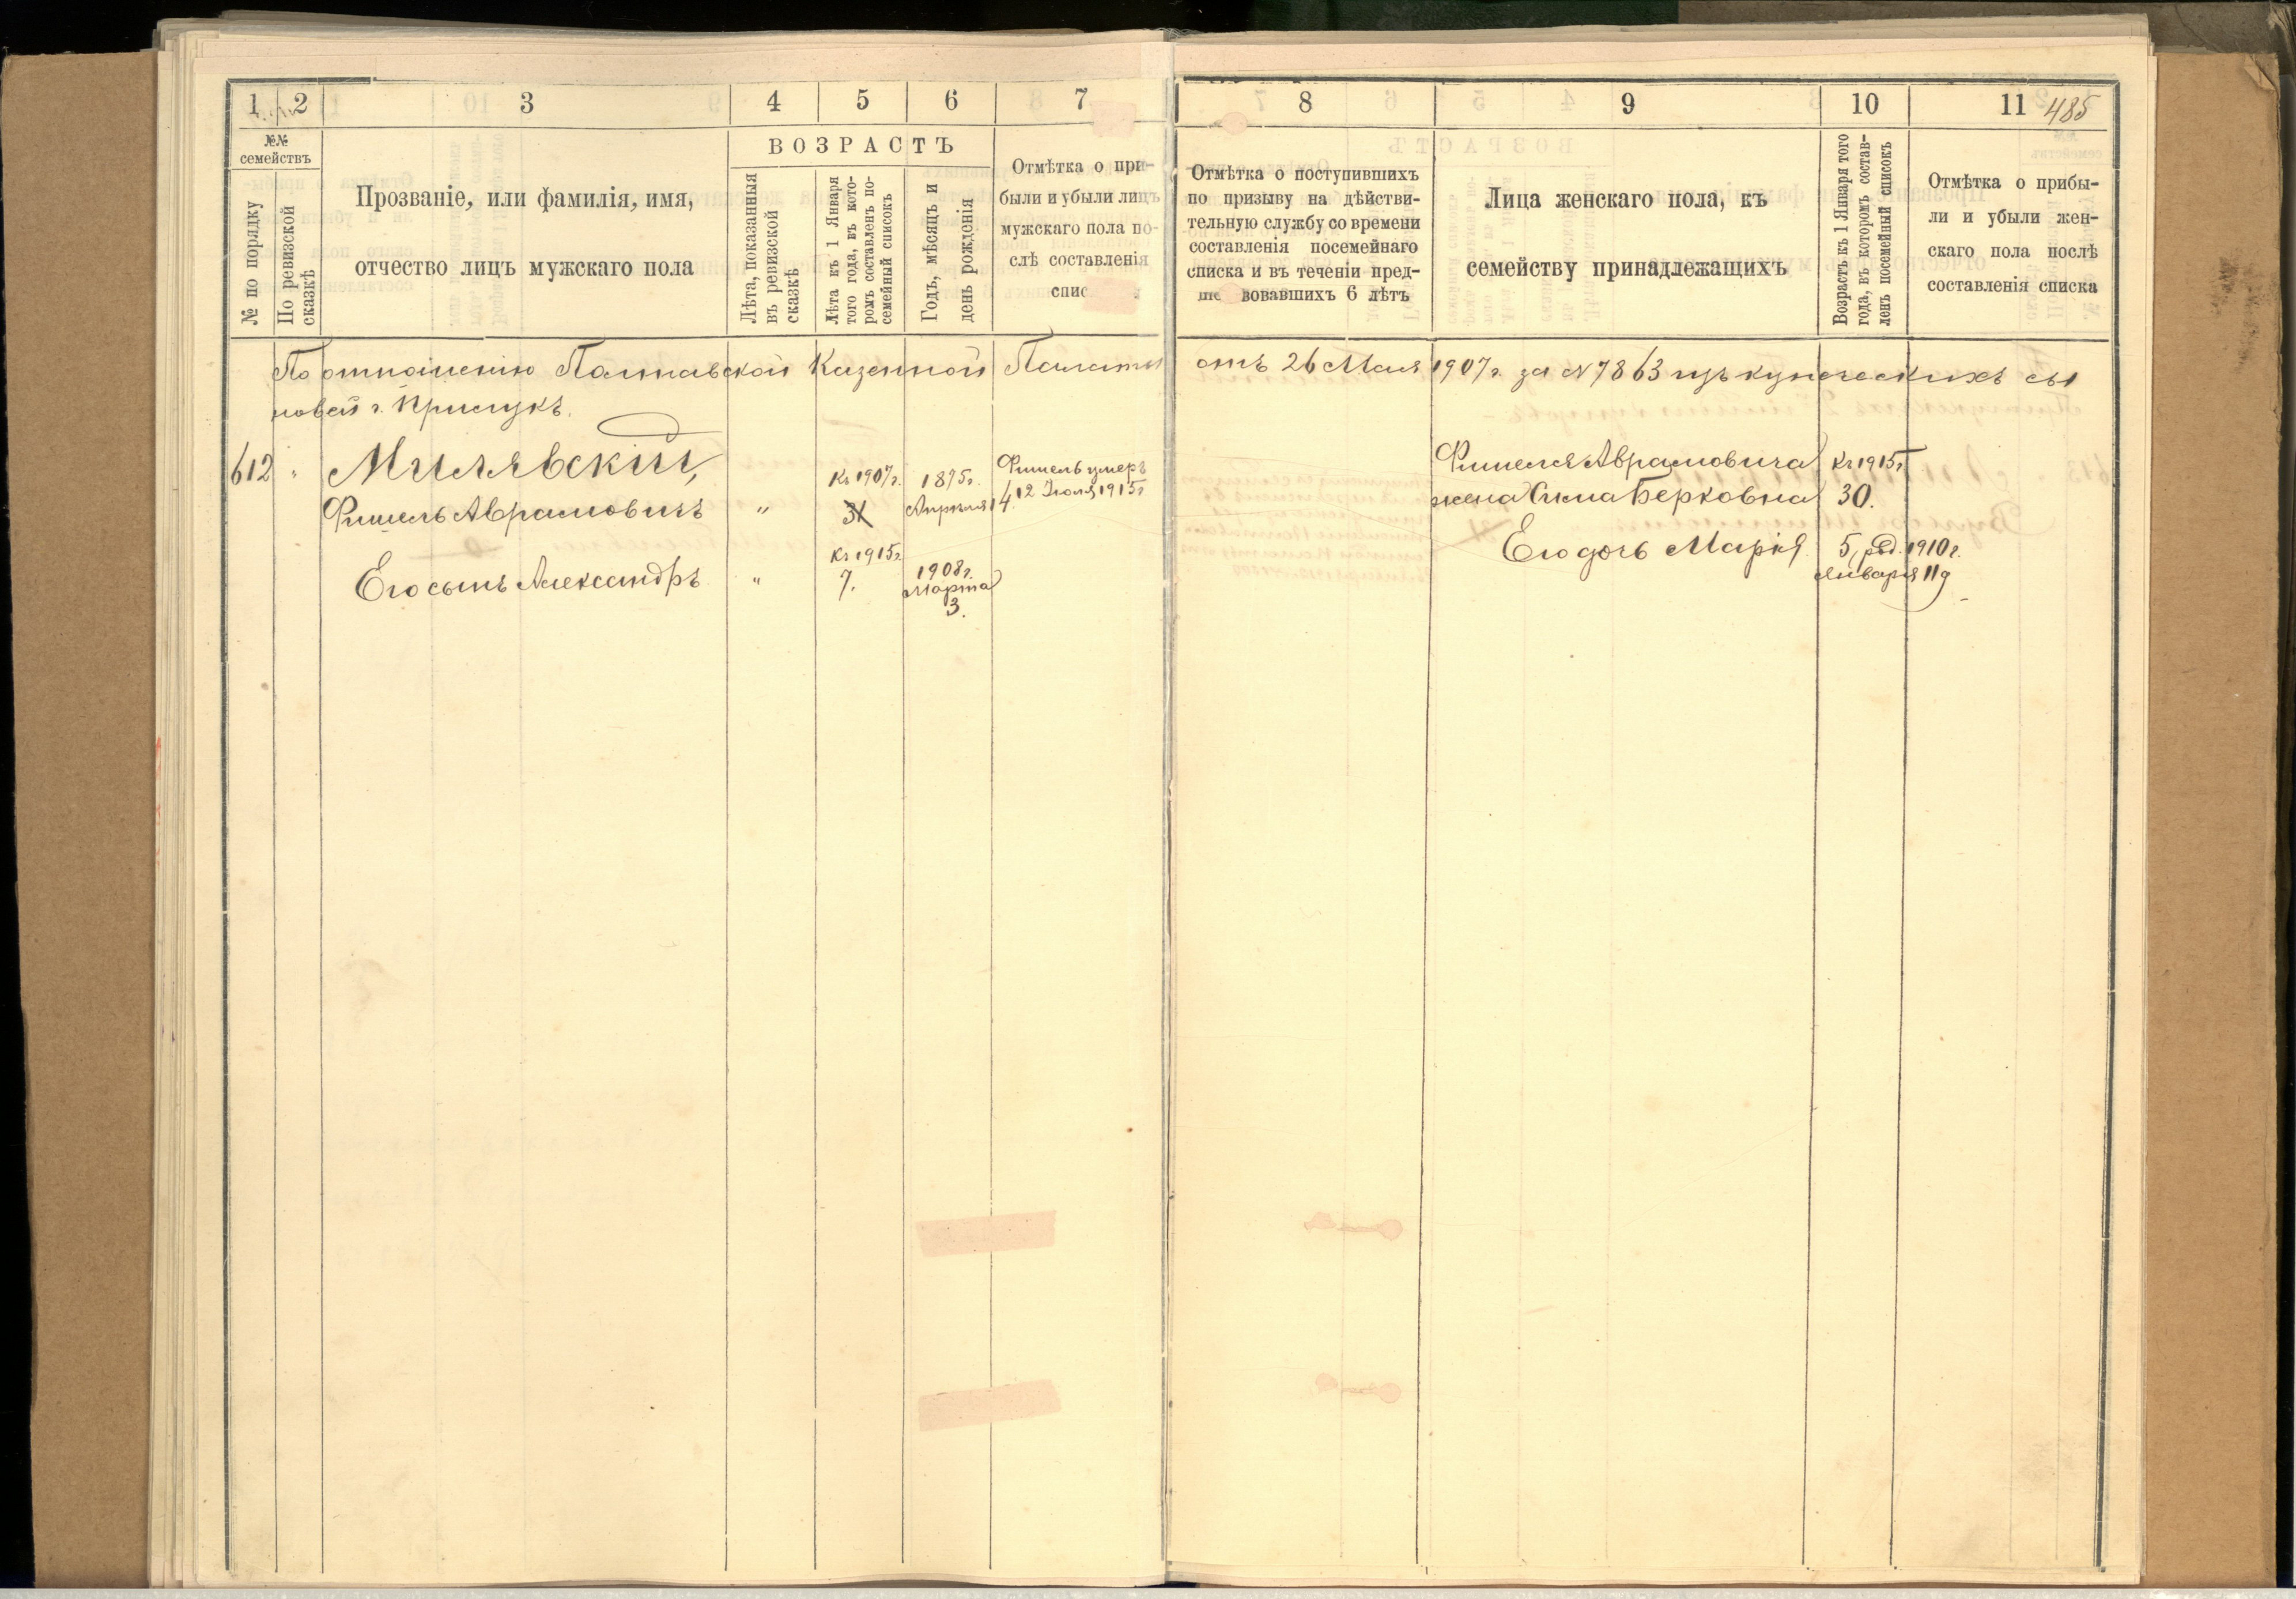 1 2 3 4 5 6 7 8 9 10 11 485
№№ семействъ
№ по порядку
По ревизской сказкѣ
Прозваніе, или фамилія, имя,
отчество лицъ мужскаго пола
ВОЗРАСТЪ
Лѣта, показанныя
въ ревизской
сказкѣ
Лѣта къ 1 Января
того года, въ кото-
ромъ составленъ по-
семейный списокъ
Годъ, мѣсяцъ и
день рожденія
Отмѣтка о при-
были и убыли лицъ
мужскаго пола по-
слѣ составленія
спис
Отмѣтка о поступившихъ
по призыву на дѣйстви-
тельную службу со времени
составленія посемейнаго
списка и въ теченіи пред-
ше вовавшихъ 6 лѣтъ
Лица женскаго пола, къ
семейству принадлежащихъ
Возрастъ къ 1 Января того
года, въ которомъ состав-
ленъ посемейный списокъ
Отмѣтка о прибы-
ли и убыли жен-
скаго пола послѣ
составленія списка
По отношенію Полтавской Казенной Палаты отъ 26 Мая 1907 г. за № 7863 изъ купеческихъ сы
новей г. Прилукъ.
612 " Милявскій,
Фишель Аврамовичъ "
Къ 1907 г.
31
1875 г.
Апрѣля 14
Фишель умеръ
12 Іюля 1915 г
Его сынъ Александръ "
Къ 1915 г.
7.
1908 г.
Марта
3.
Фишеля Аврамовича Къ 1915 г
жена Сима Берковна 30.
Его дочь Марія 5, род. 1910 г.
Января 11 д